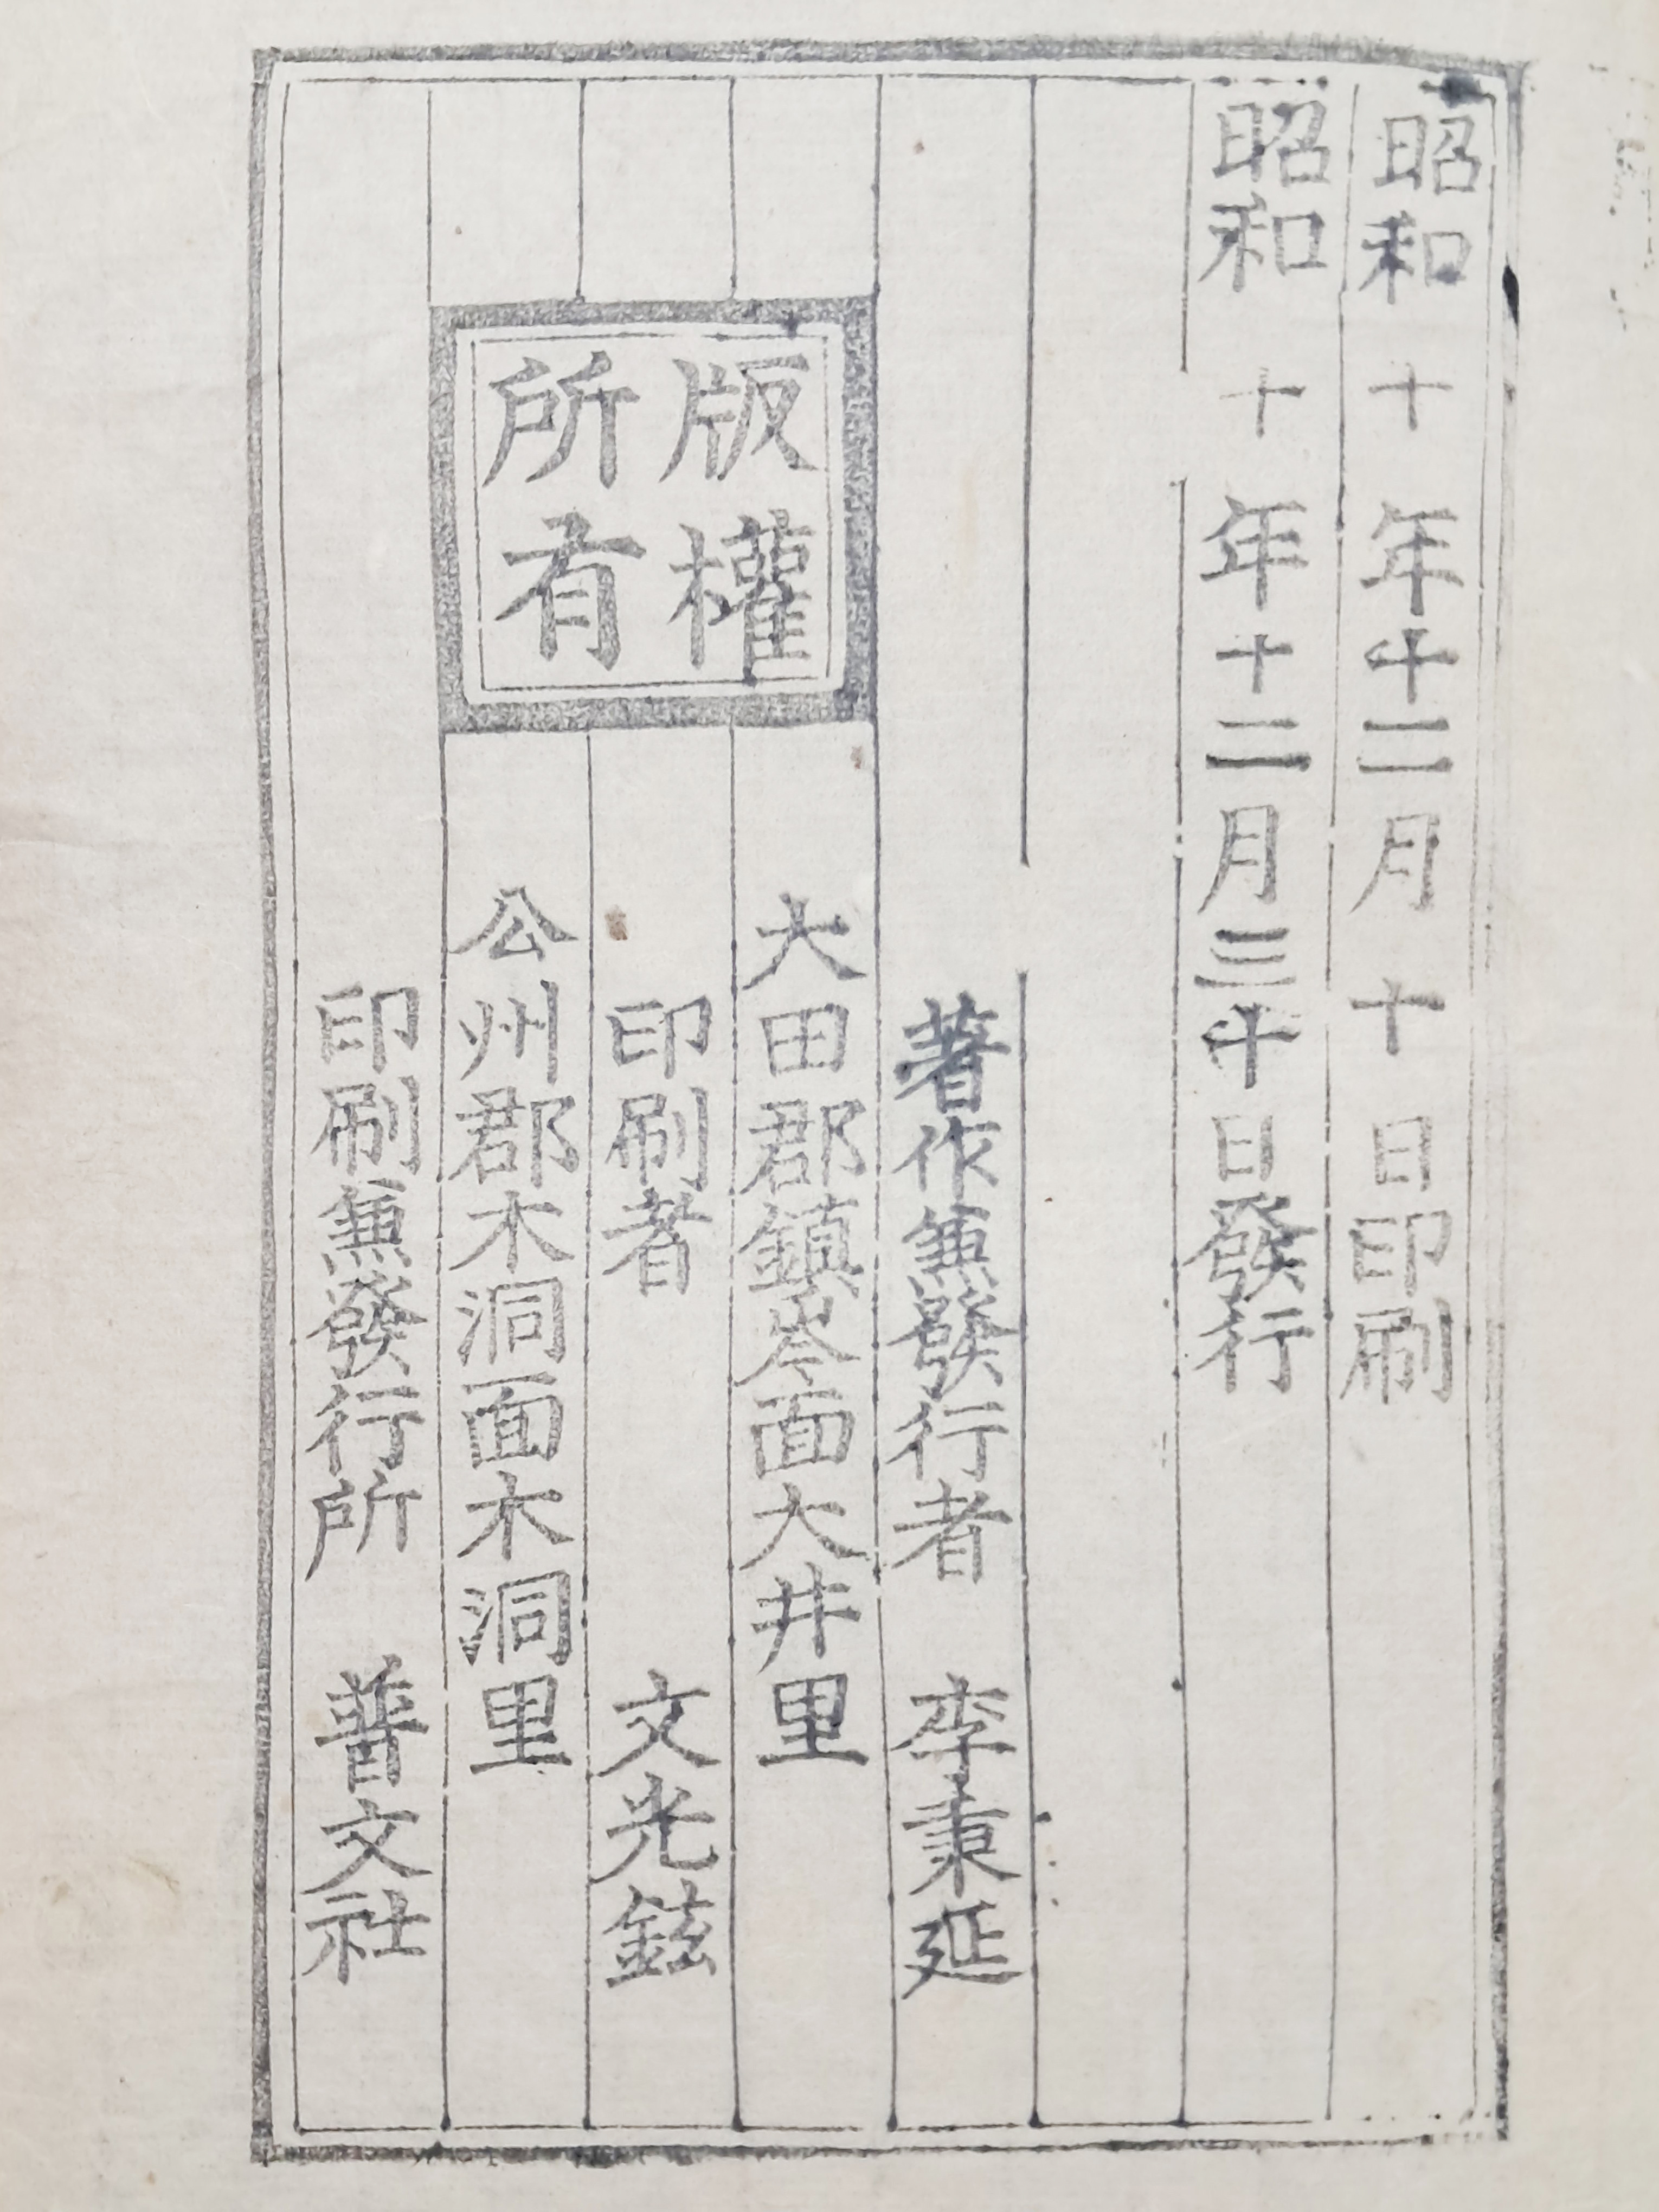 昭和十年十二月十日印刷
昭和十年十二月三十日發行
著作兼發行者 李秉延
大田郡鎭岑面大井里
版權
所有
印刷者 文光鉉
公州郡木洞面木洞里
印刷兼發行所 普文社